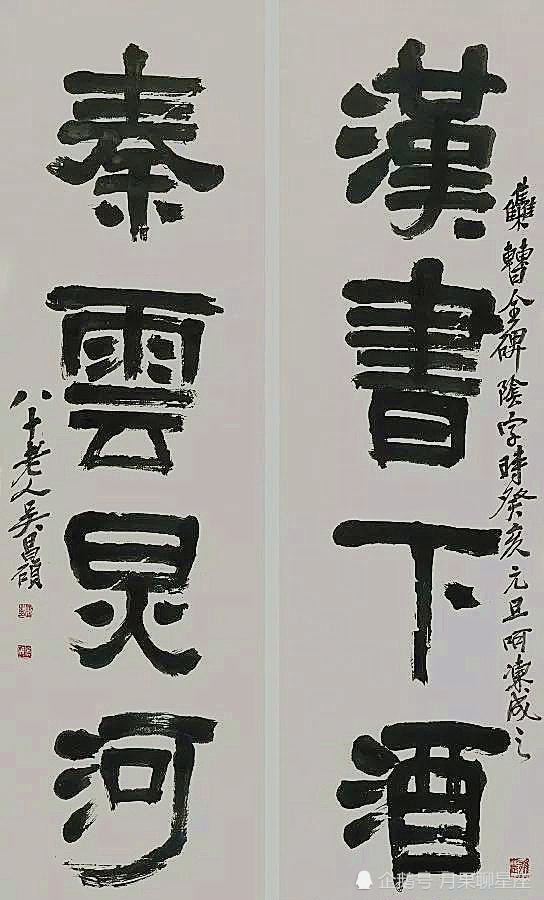 漢書下酒
集曹全碑陰字時癸亥元旦呵凍成之
秦雲炅河
八十老人吳昌碩
企鹅号 月果聊星座